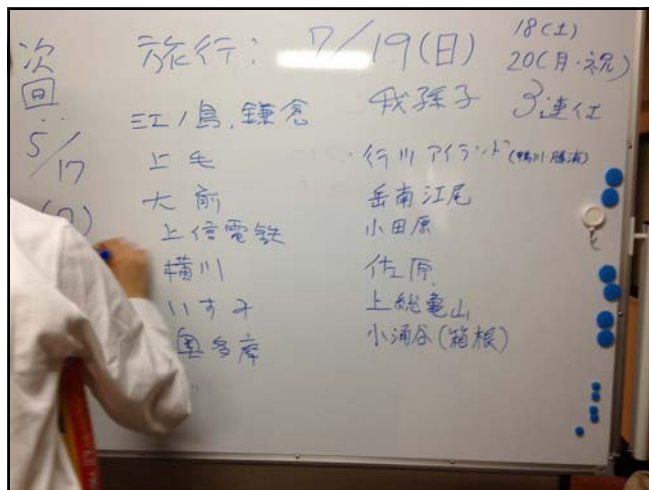 次回
:
5/17
(日)
旅行: 7/19(日)
18(土)
20(月・祝)
3連休
江ノ島,鎌倉
上毛
大前
上信電鉄
横川
いすみ
奥多摩
我孫子
・行川アイランド(鴨川・勝浦)
岳南江尾
小田原
佐原
上総亀山
小涌谷(箱根)